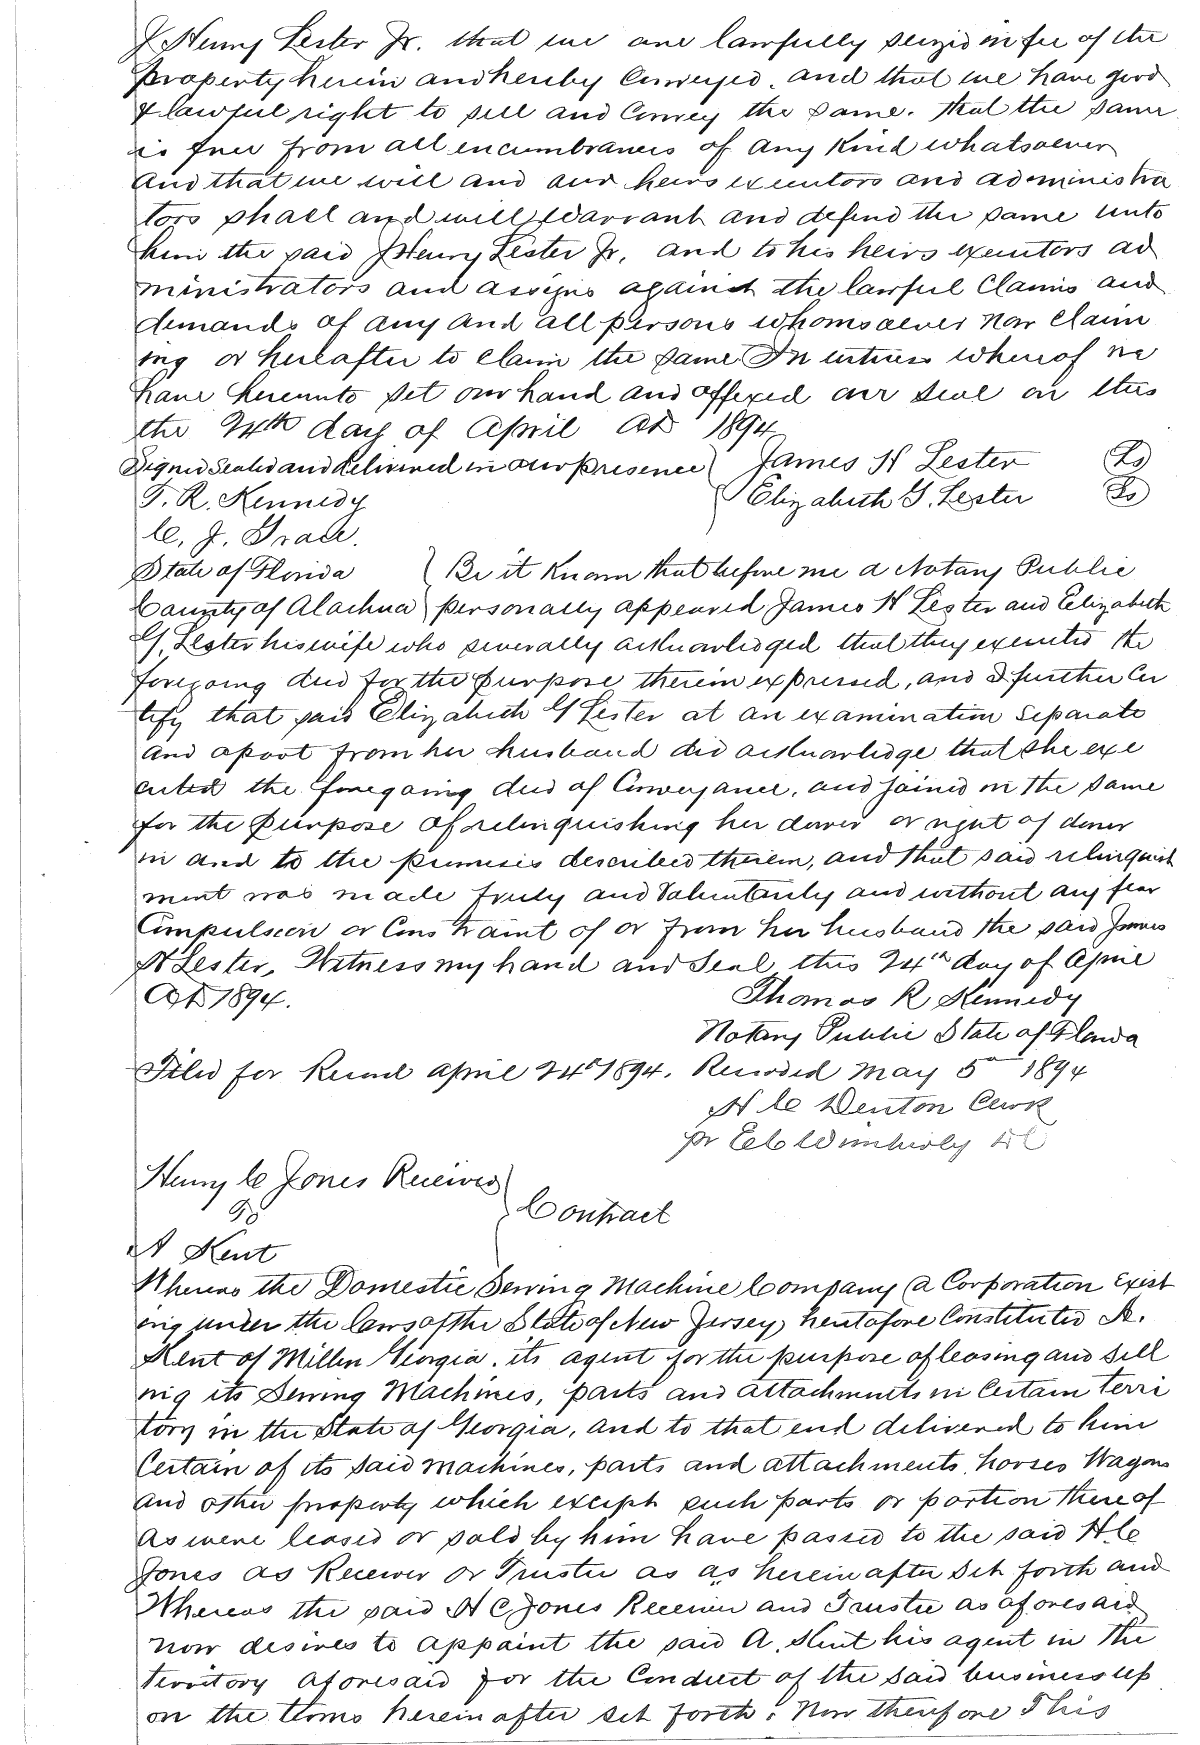 J Henry Lester Jr. that we are lawfully seized in fee of the
property herein and hereby Conveyed. and that we have good
& lawful right to sell and Convey the same. that the same
is free from all encumbrances of any Kind whatsoever
and that we will and our heirs executors and administra
tors shall and will Warrant and defend the same unto
him the said J Henry Lester Jr, and to his heirs executors ad
ministrators and assigns against the lawful Claims and
demands of any and all persons whomsoever now Claim
ing or hereafter to Claim the same In witness whereof we
have hereunto set our hand and affixed our seal on this
the 24th day of April AD 1894
Signed Sealed and delivered in our presence James H Lester Ls
T. R. Kennedy Elizabeth G. Lester Ls
C. J. Grace.
State of Florida Be it Known that before me a Notary Public
County of Alachua personally appeared James H Lester and Elizabeth
G, Lester his wife who severally acknowledged that they executed the
foregoing deed for the purpose therein expressed, and I further Cer
tify that said Elizabeth G Lester at an examination Separate
and apart from her husband did acknowledge that she exe
cuted the foregoing deed of Conveyance, and joined in the same
for the purpose of relinquishing her dower or right of dower
in and to the premises described therein, and that said relinquish
ment was made freely and Voluntarily and without any fear
Compulsion or Constraint of or from her husband the said James
H Lester, Witness my hand and Seal this 24th day of April
AD 1894.
Thomas R Kennedy
Notary Public State of Florida
Filed for Record April 24th 1894. Recorded May 5th 1894
H C Denton Clerk
pr E C Wimberly DC
Henry C Jones Receiver
To Contract
A Kent
Whereas the Domestic Sewing Machine Company (a Corporation Exist
ing under the laws of the State of New Jersey) heretofore Constituted A.
Kent of Millen Georgia. its agent for the purpose of leasing and sell
ing its Sewing Machines, parts and attachments in Certain terri
tory in the State of Georgia, and to that end delivered to him
Certain of its said machines, parts and attachments, horses Wagons
and other property which except such parts or portion thereof
as were leased or sold by him have passed to the said H C
Jones as Receiver or Trustee as as herein after set forth and
Whereas the said H C Jones Receiver and Trustee as aforesaid
now desires to appoint the said A. Kent his agent in the
territory aforesaid for the Conduct of the said business up
on the terms herein after set forth: Now therefore This